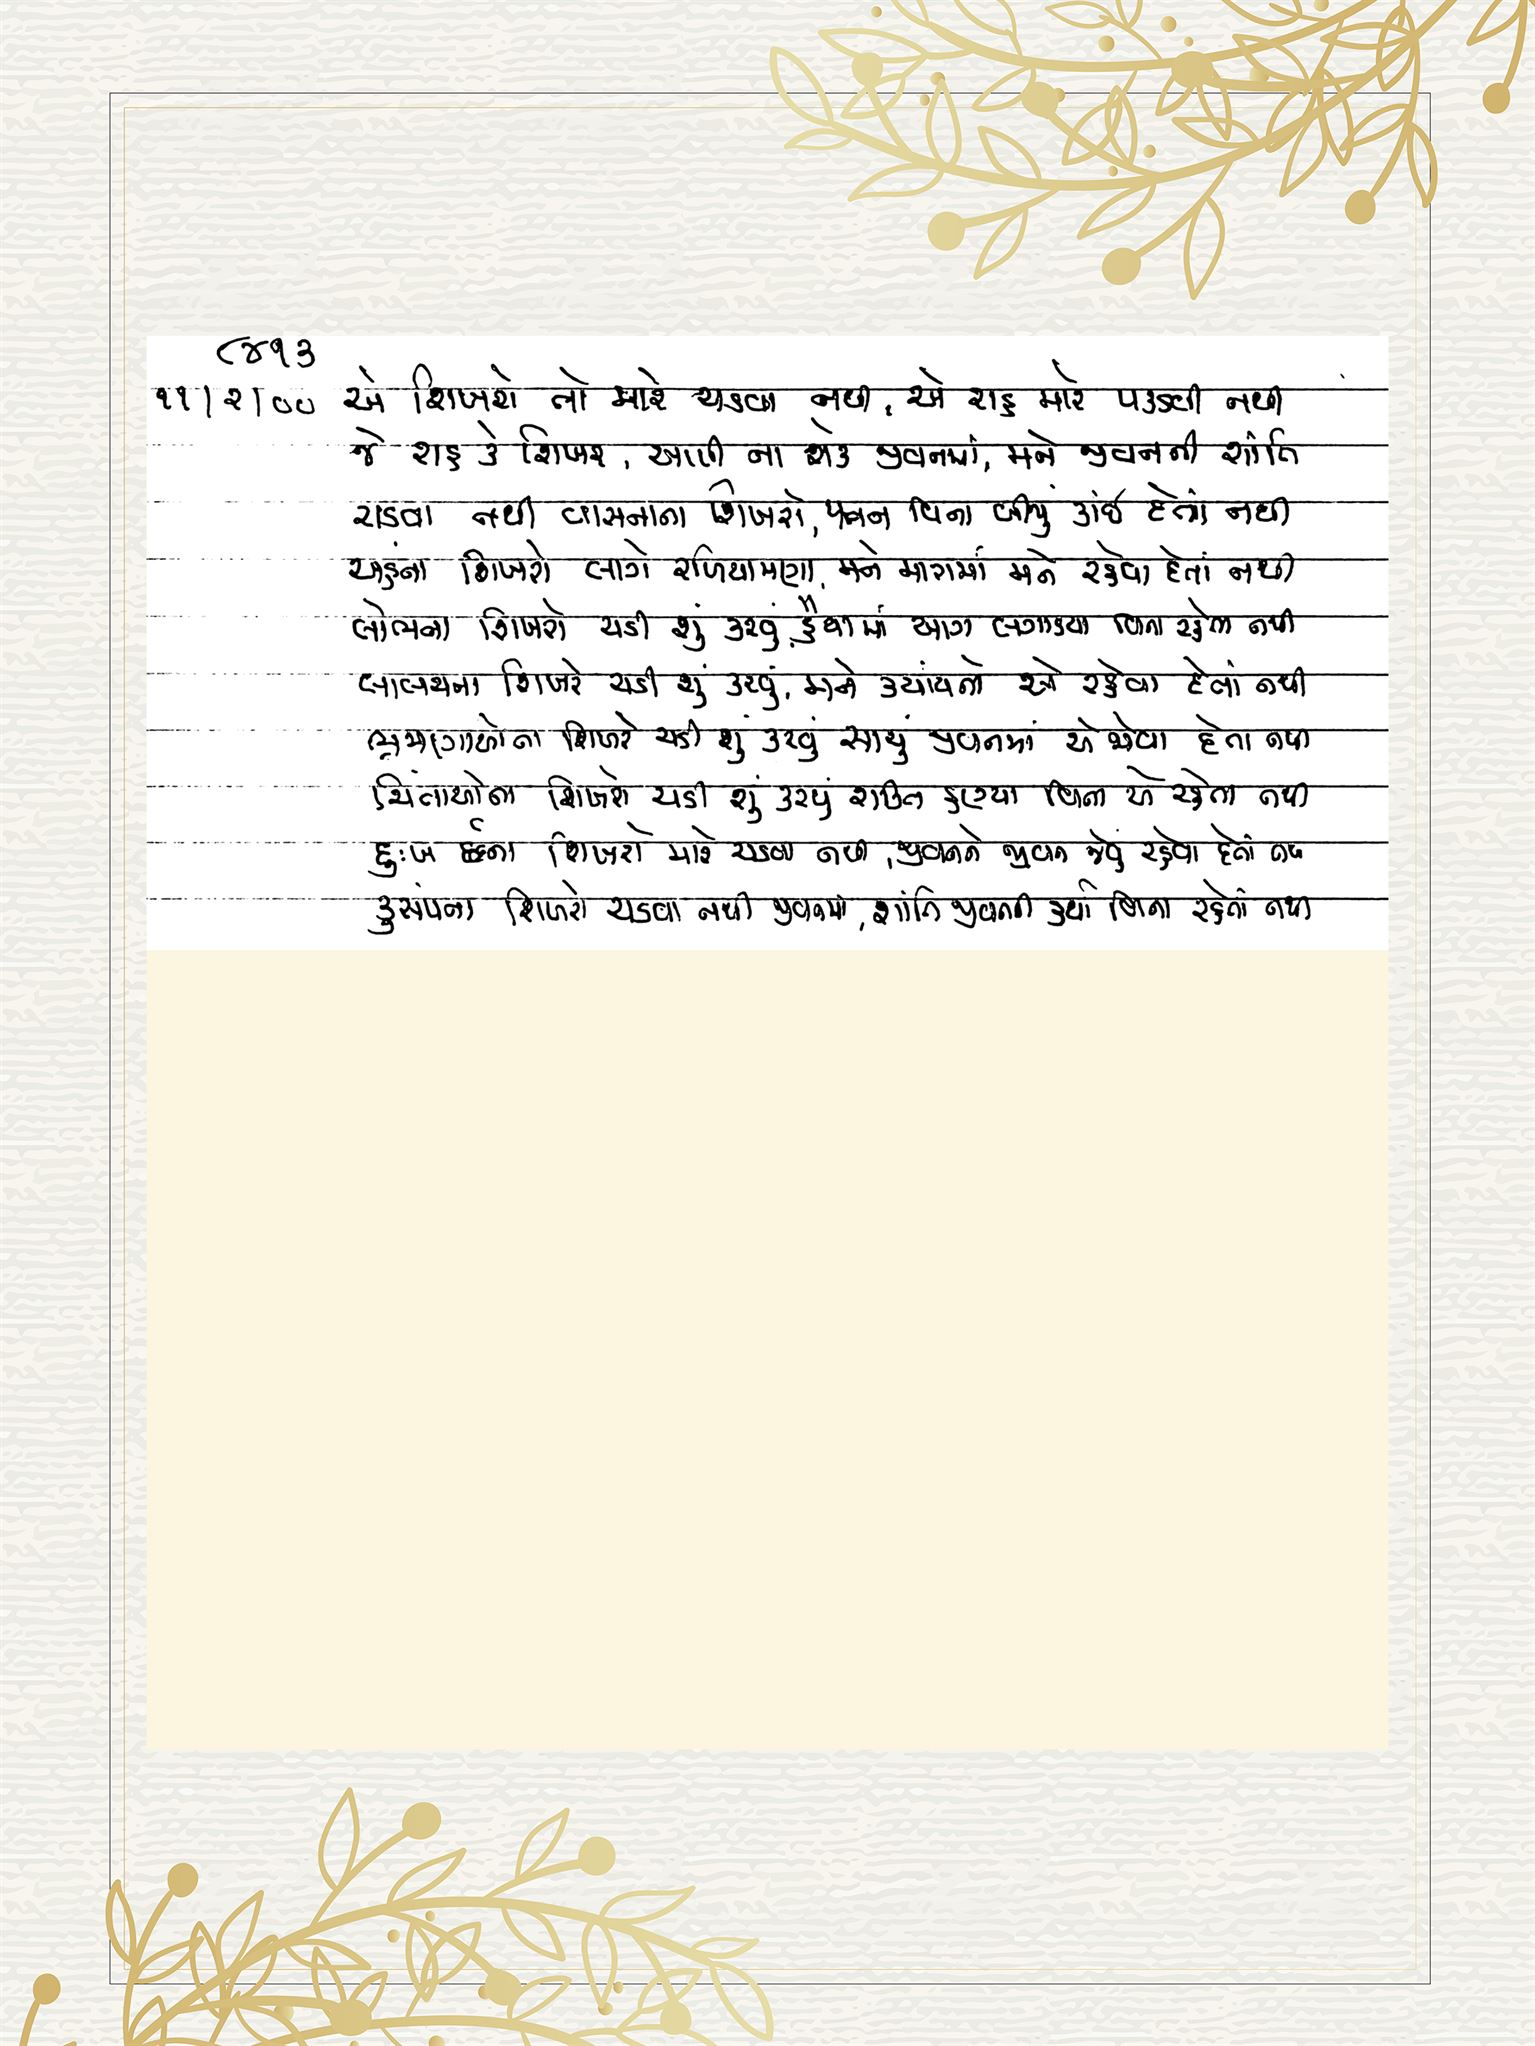 ૮૪૧૩
૧૧/૨/૦૦ એ શિખરો તો મારે ચડવા નથી, એ રાહ મારે પકડવી નથી
જે રાહ કે શિખર, આણી ના શકે જીવનમાં, મને જીવનની શાંતિ
ચડવા નથી વાસનાના શિખરો, પતન વિના બીજું કાંઈ દેતાં નથી
અહંના શિખરો લાગે રળિયામણા, મને મારામાં મને રહેવા દેતાં નથી
લોભના શિખરો ચડી શું કરવું, હૈયામાં આગ લગાડયા વિના રહેતા નથી
લાલચના શિખરે ચડી શું કરવું, મને ક્યાંયનો એ રહેવા દેતાં નથી
ભ્રમણાઓના શિખરે ચડી શું કરવું સાચું જીવનમાં એ જોવા દેતા નથી
ચિંતાઓના શિખરો ચડી શું કરવું શક્તિ હણ્યા વિના એ રહેતા નથી
દુઃખ દર્દના શિખરો મારે ચડવા નથી, જીવનને જીવન જેવું રહેવા દેતાં નથી
કુસંપના શિખરો ચડવા નથી જીવનમાં, શાંતિ જીવનની હર્યા વિના રહેતાં નથી